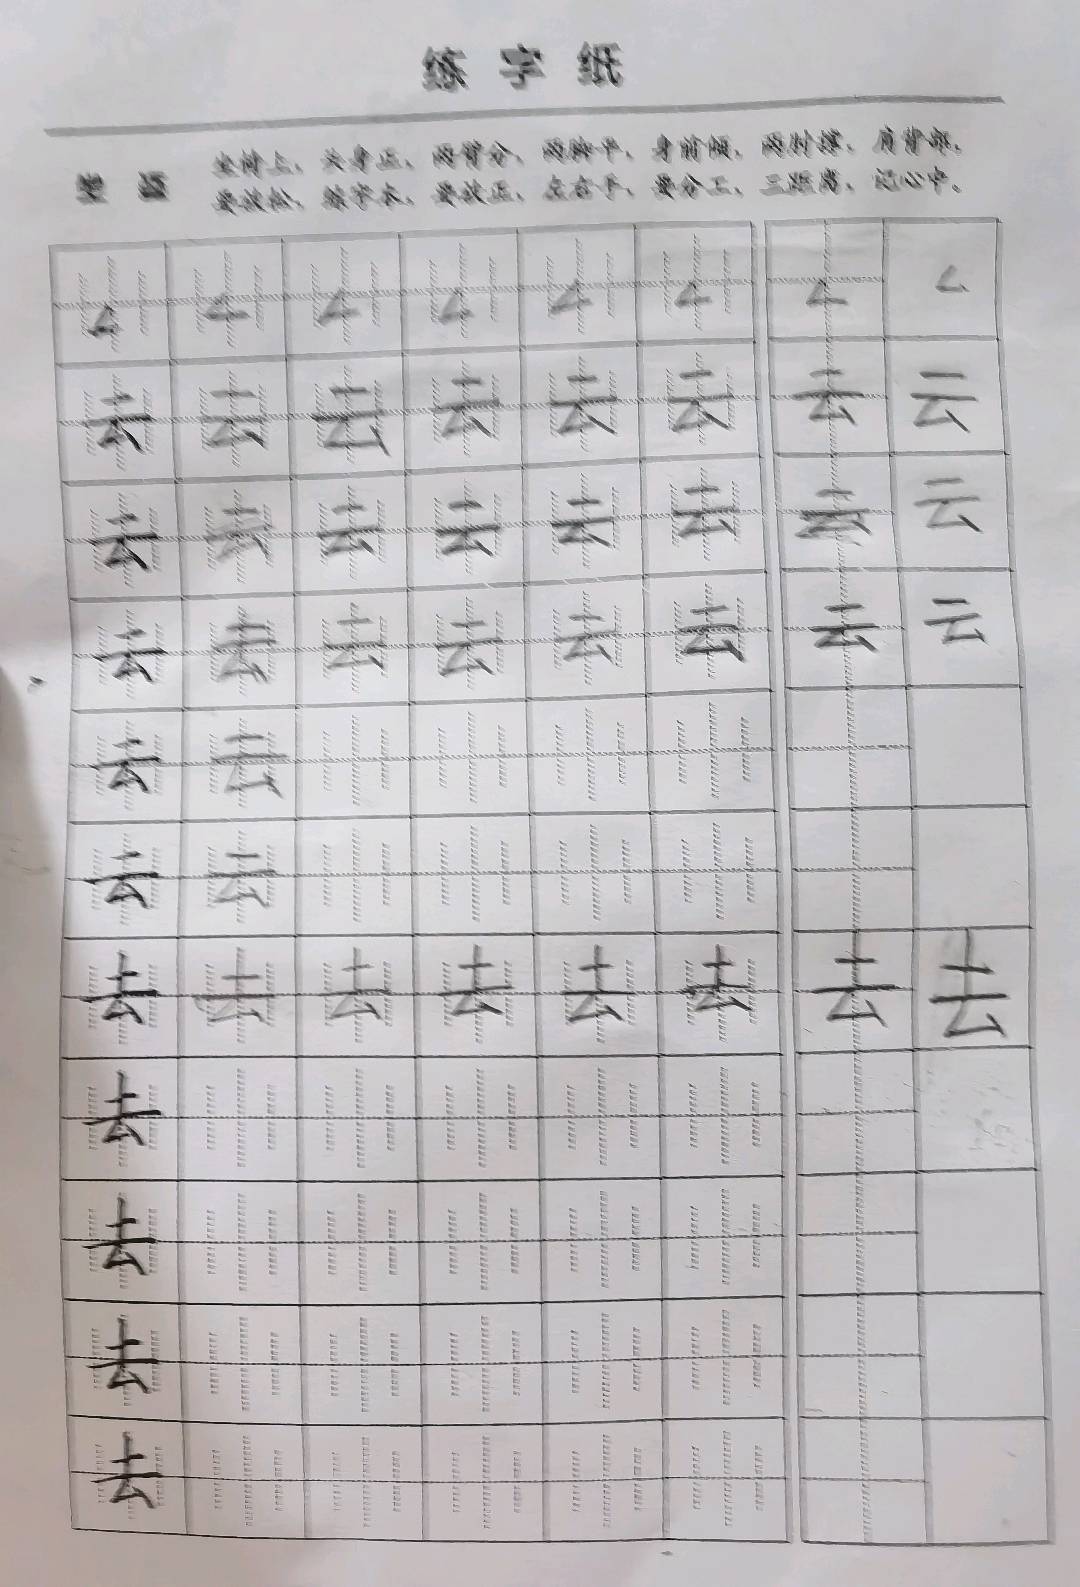 练字纸
坐姿 坐椅上、头身正、两臂分、两脚平、身前倾、两肘撑、肩背部、
要放松、练字本、要放正、左右手、要分工、三距离、记心中。
厶 厶 厶 厶 厶 厶 厶 厶
云 云 云 云 云 云 云 云
云 云 云 云 云 云 云 云
云 云 云 云 云 云 云 云
云 云
云 云
去 去 去 去 去 去 去 去
去
去
去
去